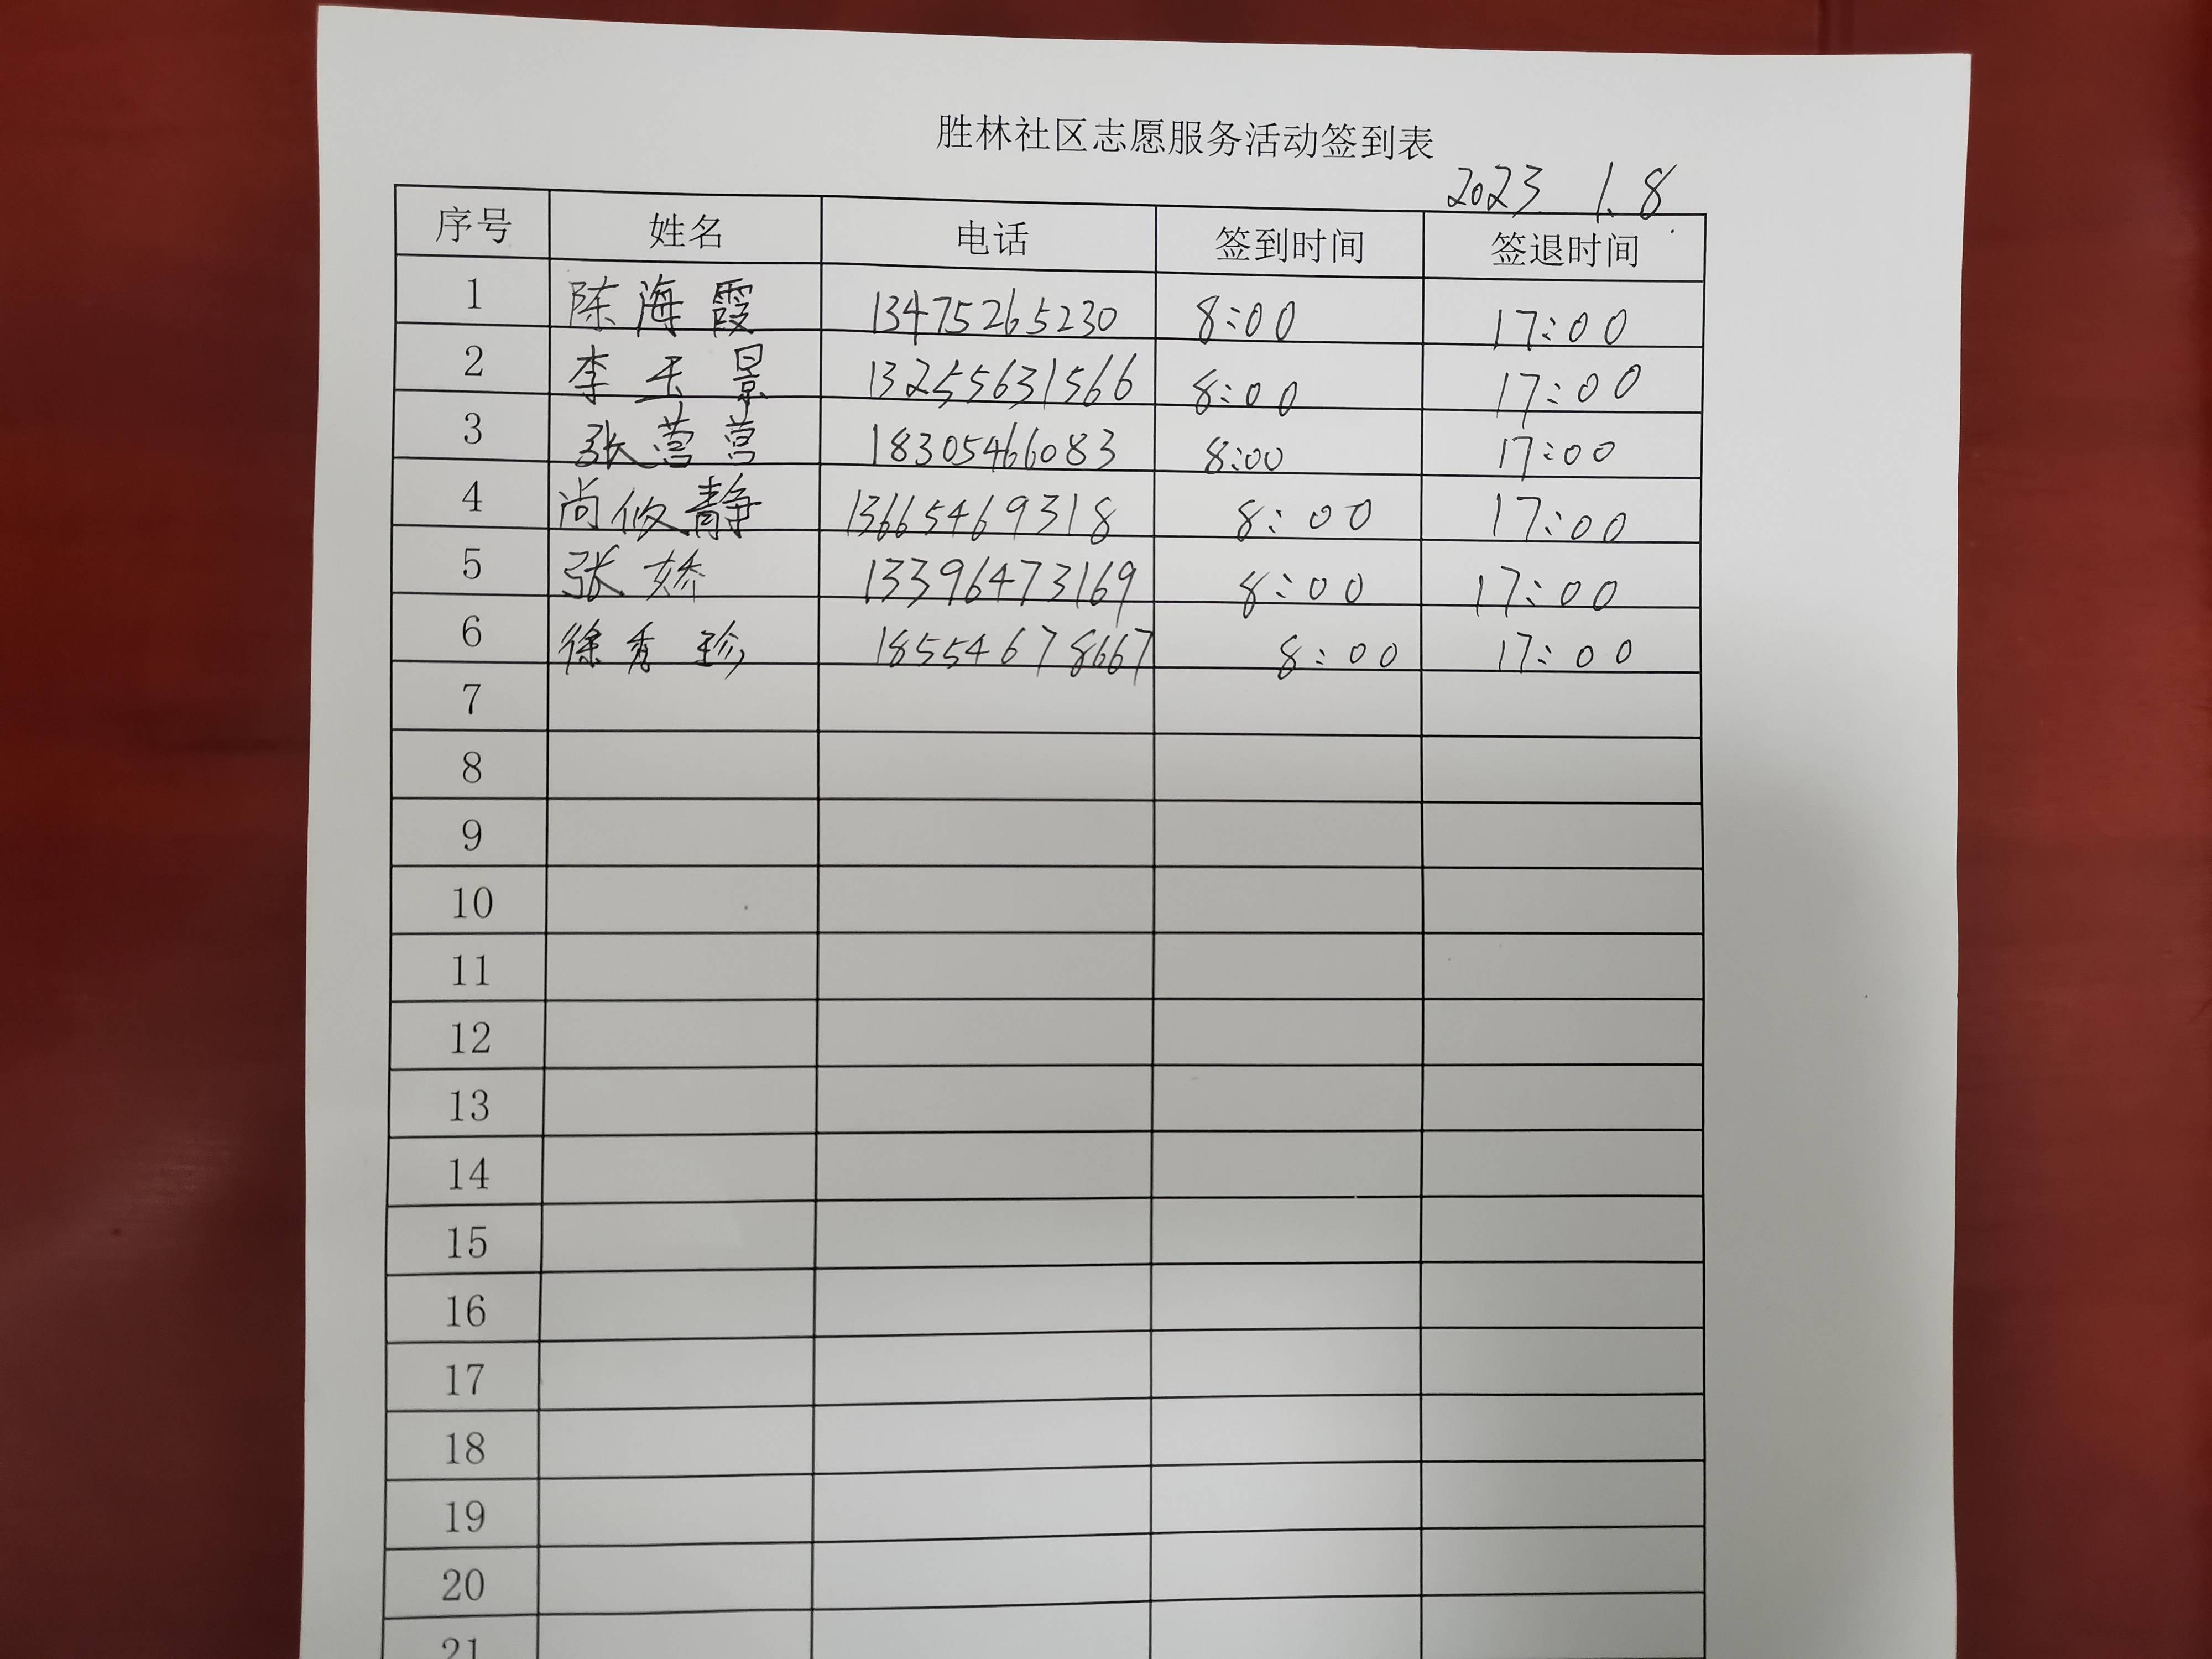 胜林社区志愿服务活动签到表
2023. 1.8
序号 姓名 电话 签到时间 签退时间
1 陈海霞 13475265230 8:00 17:00
2 李玉景 13255631566 8:00 17:00
3 张营营 18305466083 8:00 17:00
4 尚攸静 13665469318 8:00 17:00
5 张娇 13396473169 8:00 17:00
6 徐秀珍 18554678667 8:00 17:00
7
8
9
10
11
12
13
14
15
16
17
18
19
20
21